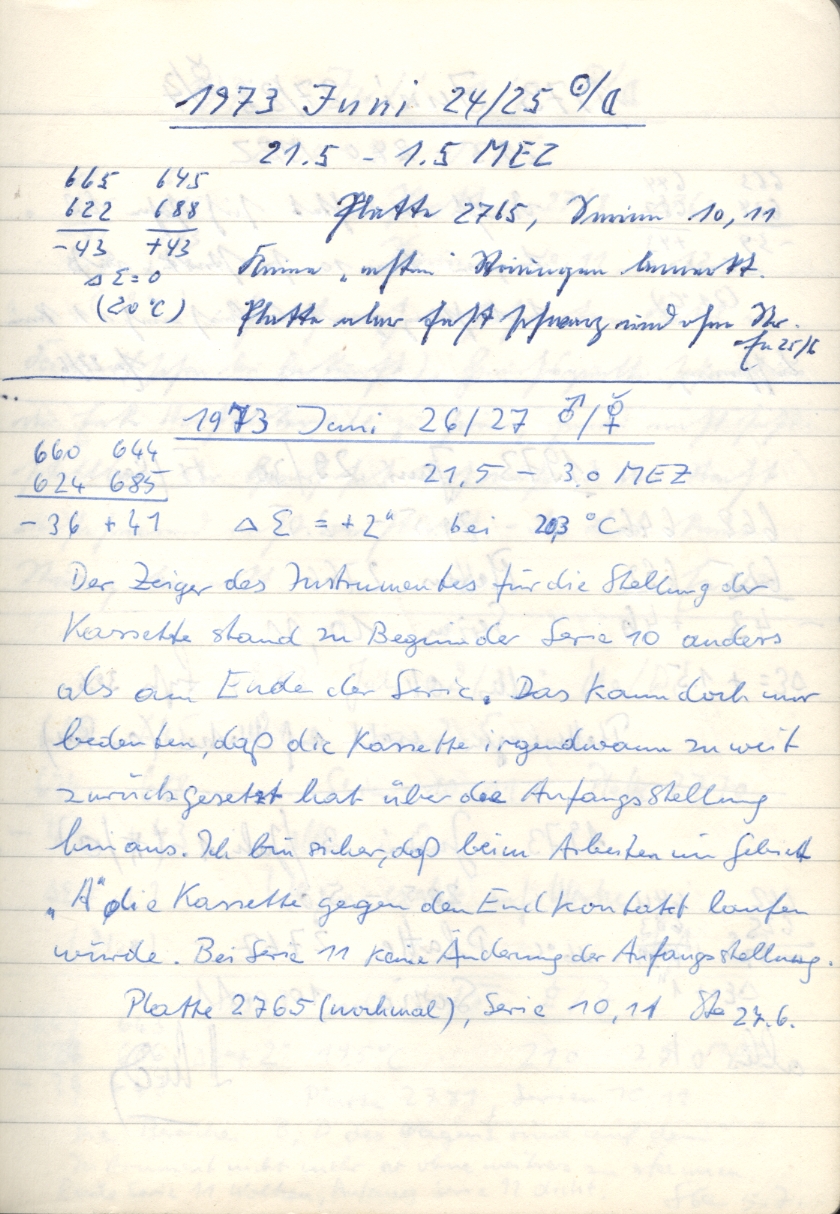 1973 Juni 24/25 ☉/☾
21.5 – 1.5 MEZ
665 645
622 688
-43 +43
Platte 2765, Serien 10, 11
Δ Σ = 0
Keine „echten" Störungen bemerkt.
(20 °C)
Platte aber fast schwarz und ohne Nr.
25/6
1973 Juni 26/27 ♂/☿
660 644
624 685
21,5 – 3.0 MEZ
- 36 + 41 Δ Σ = +2" bei 20,3 °C
Der Zeiger des Instrumentes für die Stellung der
Kassette stand zu Beginn der Serie 10 anders
als am Ende der Serie. Das kann doch nur
bedeuten, daß die Kassette irgendwann zu weit
zurückgesetzt hat über die Anfangsstellung
hinaus. Ich bin sicher, daß beim Arbeiten im Gebiet
„A" die Kassette gegen den Endkontakt laufen
würde. Bei Serie 11 keine Änderung der Anfangsstellung.
Platte 2765 (nochmal), Serie 10,11 27.6.